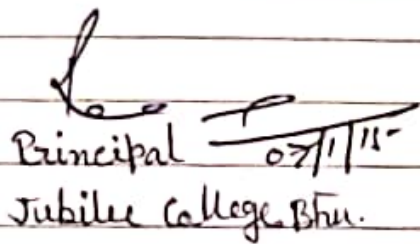 Principal 07/1/15
Jubilee College Bhu.